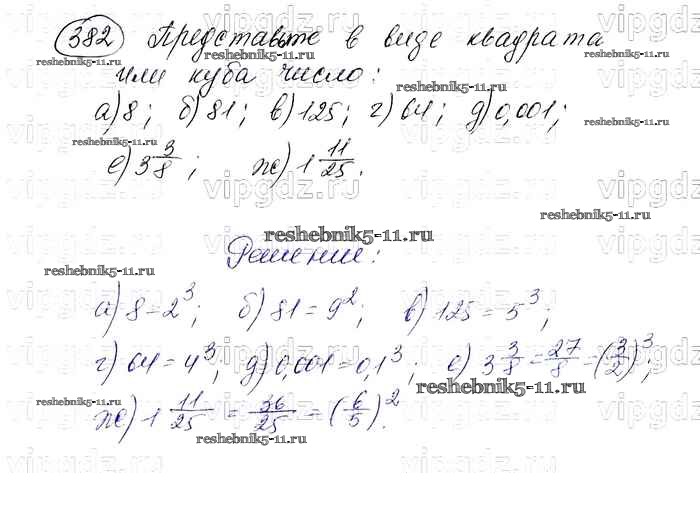 382 Представьте в виде квадрата
или куба число:
а) 8; б) 81; в) 125; г) 64; д) 0,001;
е) 3 3/8; ж) 1 11/25.
Решение:
а) 8 = 2³; б) 81 = 9²; в) 125 = 5³;
г) 64 = 4³; д) 0,001 = 0,1³; е) 3 3/8 = 27/8 = (3/2)³;
ж) 1 11/25 = 36/25 = (6/5)².
vipgdz.ru
reshebnik5-11.ru